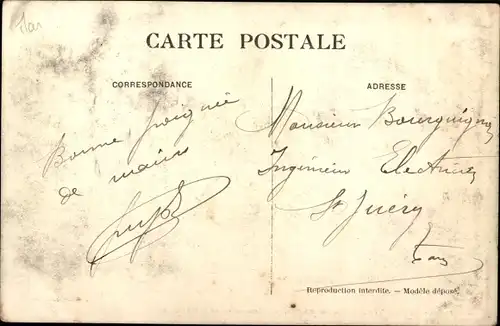 CARTE POSTALE
CORRESPONDANCE
ADRESSE
Bonne poignée
de mains
Monsieur Bourguignon
Ingénieur Electricien
St Juéry
Tarn
Reproduction interdite. — Modèle déposé.